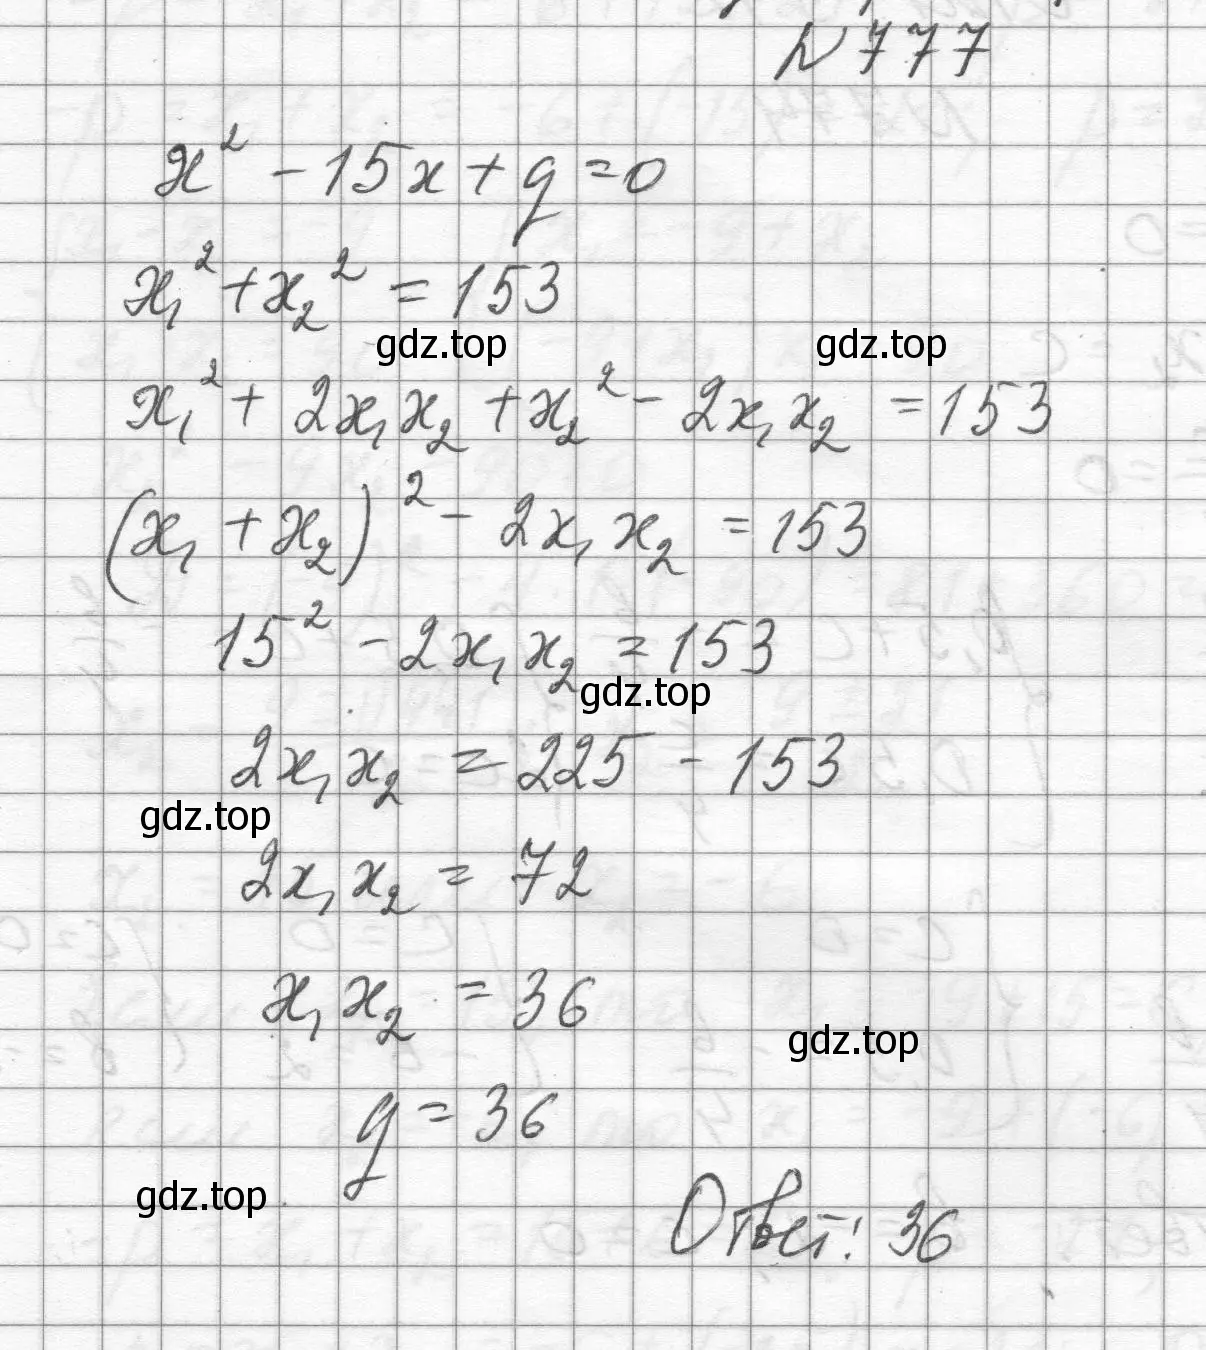 N777
x² - 15x + q = 0
x₁² + x₂² = 153
gdz.top gdz.top
x₁² + 2x₁x₂ + x₂² - 2x₁x₂ = 153
(x₁ + x₂)² - 2x₁x₂ = 153
15² - 2x₁x₂ = 153
gdz.top
2x₁x₂ = 225 - 153
gdz.top
2x₁x₂ = 72
x₁x₂ = 36
gdz.top
q = 36
gdz.top
Ответ: 36